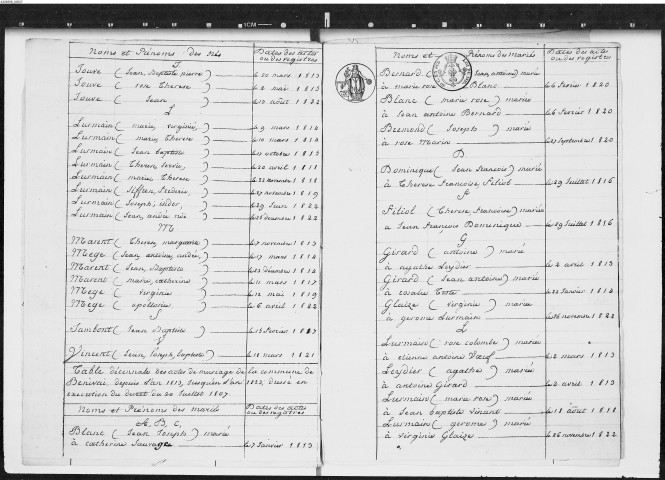 Noms et Prénoms des nés Dates des actes ou des registres
J
Jouve ( Jean, Baptiste pierre ) le 20 mars 1813
Jouve ( rose Therese ) le 2 mai 1813
Jouve ( Jean ) le 12 aout 1822
L
Lurmain ( marie, virginie, ) le 9 mars 1814
Lurmain ( marie Therese ) le 10 mars 1814
Lurmain ( Jean, baptiste ) le octobre 1815
Lurmain ( Therese ) le 20 avril 1818
Lurmain ( marie Therese ) le 22 novembre 1818
Lurmain ( Siffren, Frederic, ) le 27 novembre 1819
Lurmain ( Joseph, isidor, ) le 29 Juin 1822
Lurmain ( Jean, andré ) le 28 decembre 1822
M
Marent ( Therese, marguerite ) le 7 novembre 1813
Mege ( Jean, antoine, andré, ) le 17 mars 1814
Marent ( Jean, Baptiste ) le 23 decembre 1814
Marent ( marie, catherine ) le 11 mars 1817
Mege ( virginie ) le 12 mai 1819
Mege ( apollonie ) le 6 avril 1822
S
Sambont ( Jean Baptiste ) le 15 Fevrier 1817
V
Vincent ( Jean, Joseph, baptiste ) le 18 mars 1821
Table décennale des actes de mariage de la commune de
Benivai, depuis l'an 1813, Jusqu'en l'an 1823, dressé en
execution du decret du 20 Juillet 1807.
Noms et Prénoms des mariés Dates des actes ou des registres
A, B, C,
Blanc ( Jean Joseph ) marié
à catherine Sauvage le 7 Janvier 1813
Noms et Prénoms des mariés Dates des actes ou des registres
Bernard ( Jean, antoine ) marié
à marie rose Blanc le 6 Fevrier 1820
Blanc ( marie rose ) mariée
à Jean antoine Bernard le 6 Fevrier 1820
Bremond ( Joseph ) marié
à rose Marin le 27 septembre 1820
D
Dominique ( Jean francois ) marié
à Therese Francoise Filiol le 29 Juillet 1816
F
Filiol ( Therese, Francoise ) mariée
à Jean Francois Dominique le 29 Juillet 1816
G
Girard ( antoine ) marié
à agathe Leydier le 2 avril 1813
Girard ( Jean antoine ) marié
à Teste le 22 Janvier 1814
Glaize ( virginie ) mariée
à gerome Lurmain le 26 novembre 1822
L
Lurmain ( rose colombe ) mariée
à etienne antoine le 2 mars 1813
Leydier ( agathe ) mariée
à antoine Girard le 2 avril 1813
Lurmain ( marie rose ) mariée
à Jean baptiste vincent le 18 aout 1818
Lurmain ( gerome ) marié
à virginie Glaize le 26 novembre 1822